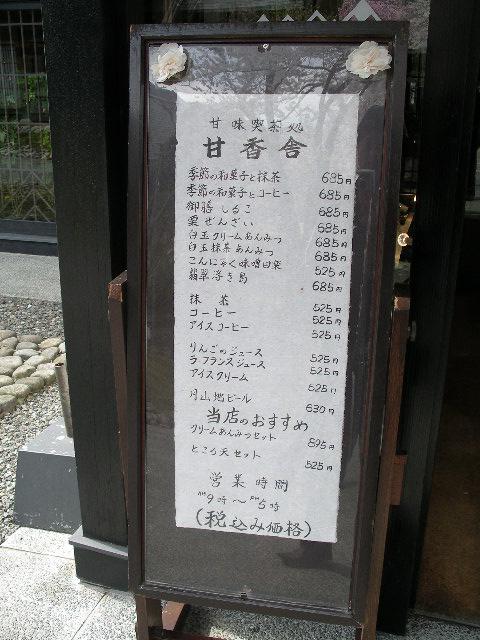 甘味喫茶処
甘香舎
季節の和菓子と抹茶 685円
季節の和菓子とコーヒー 685円
御膳しるこ 685円
栗ぜんざい 685円
白玉クリームあんみつ 685円
白玉抹茶あんみつ 685円
こんにゃく味噌田楽 525円
翡翠浮き島 685円
抹茶 525円
コーヒー 525円
アイスコーヒー 525円
りんごのジュース 525円
ラ・フランスジュース 525円
アイスクリーム 525円
月山地ビール 630円
当店のおすすめ
クリームあんみつセット 895円
ところ天セット 525円
営業時間
AM9時〜PM5時
(税込み価格)